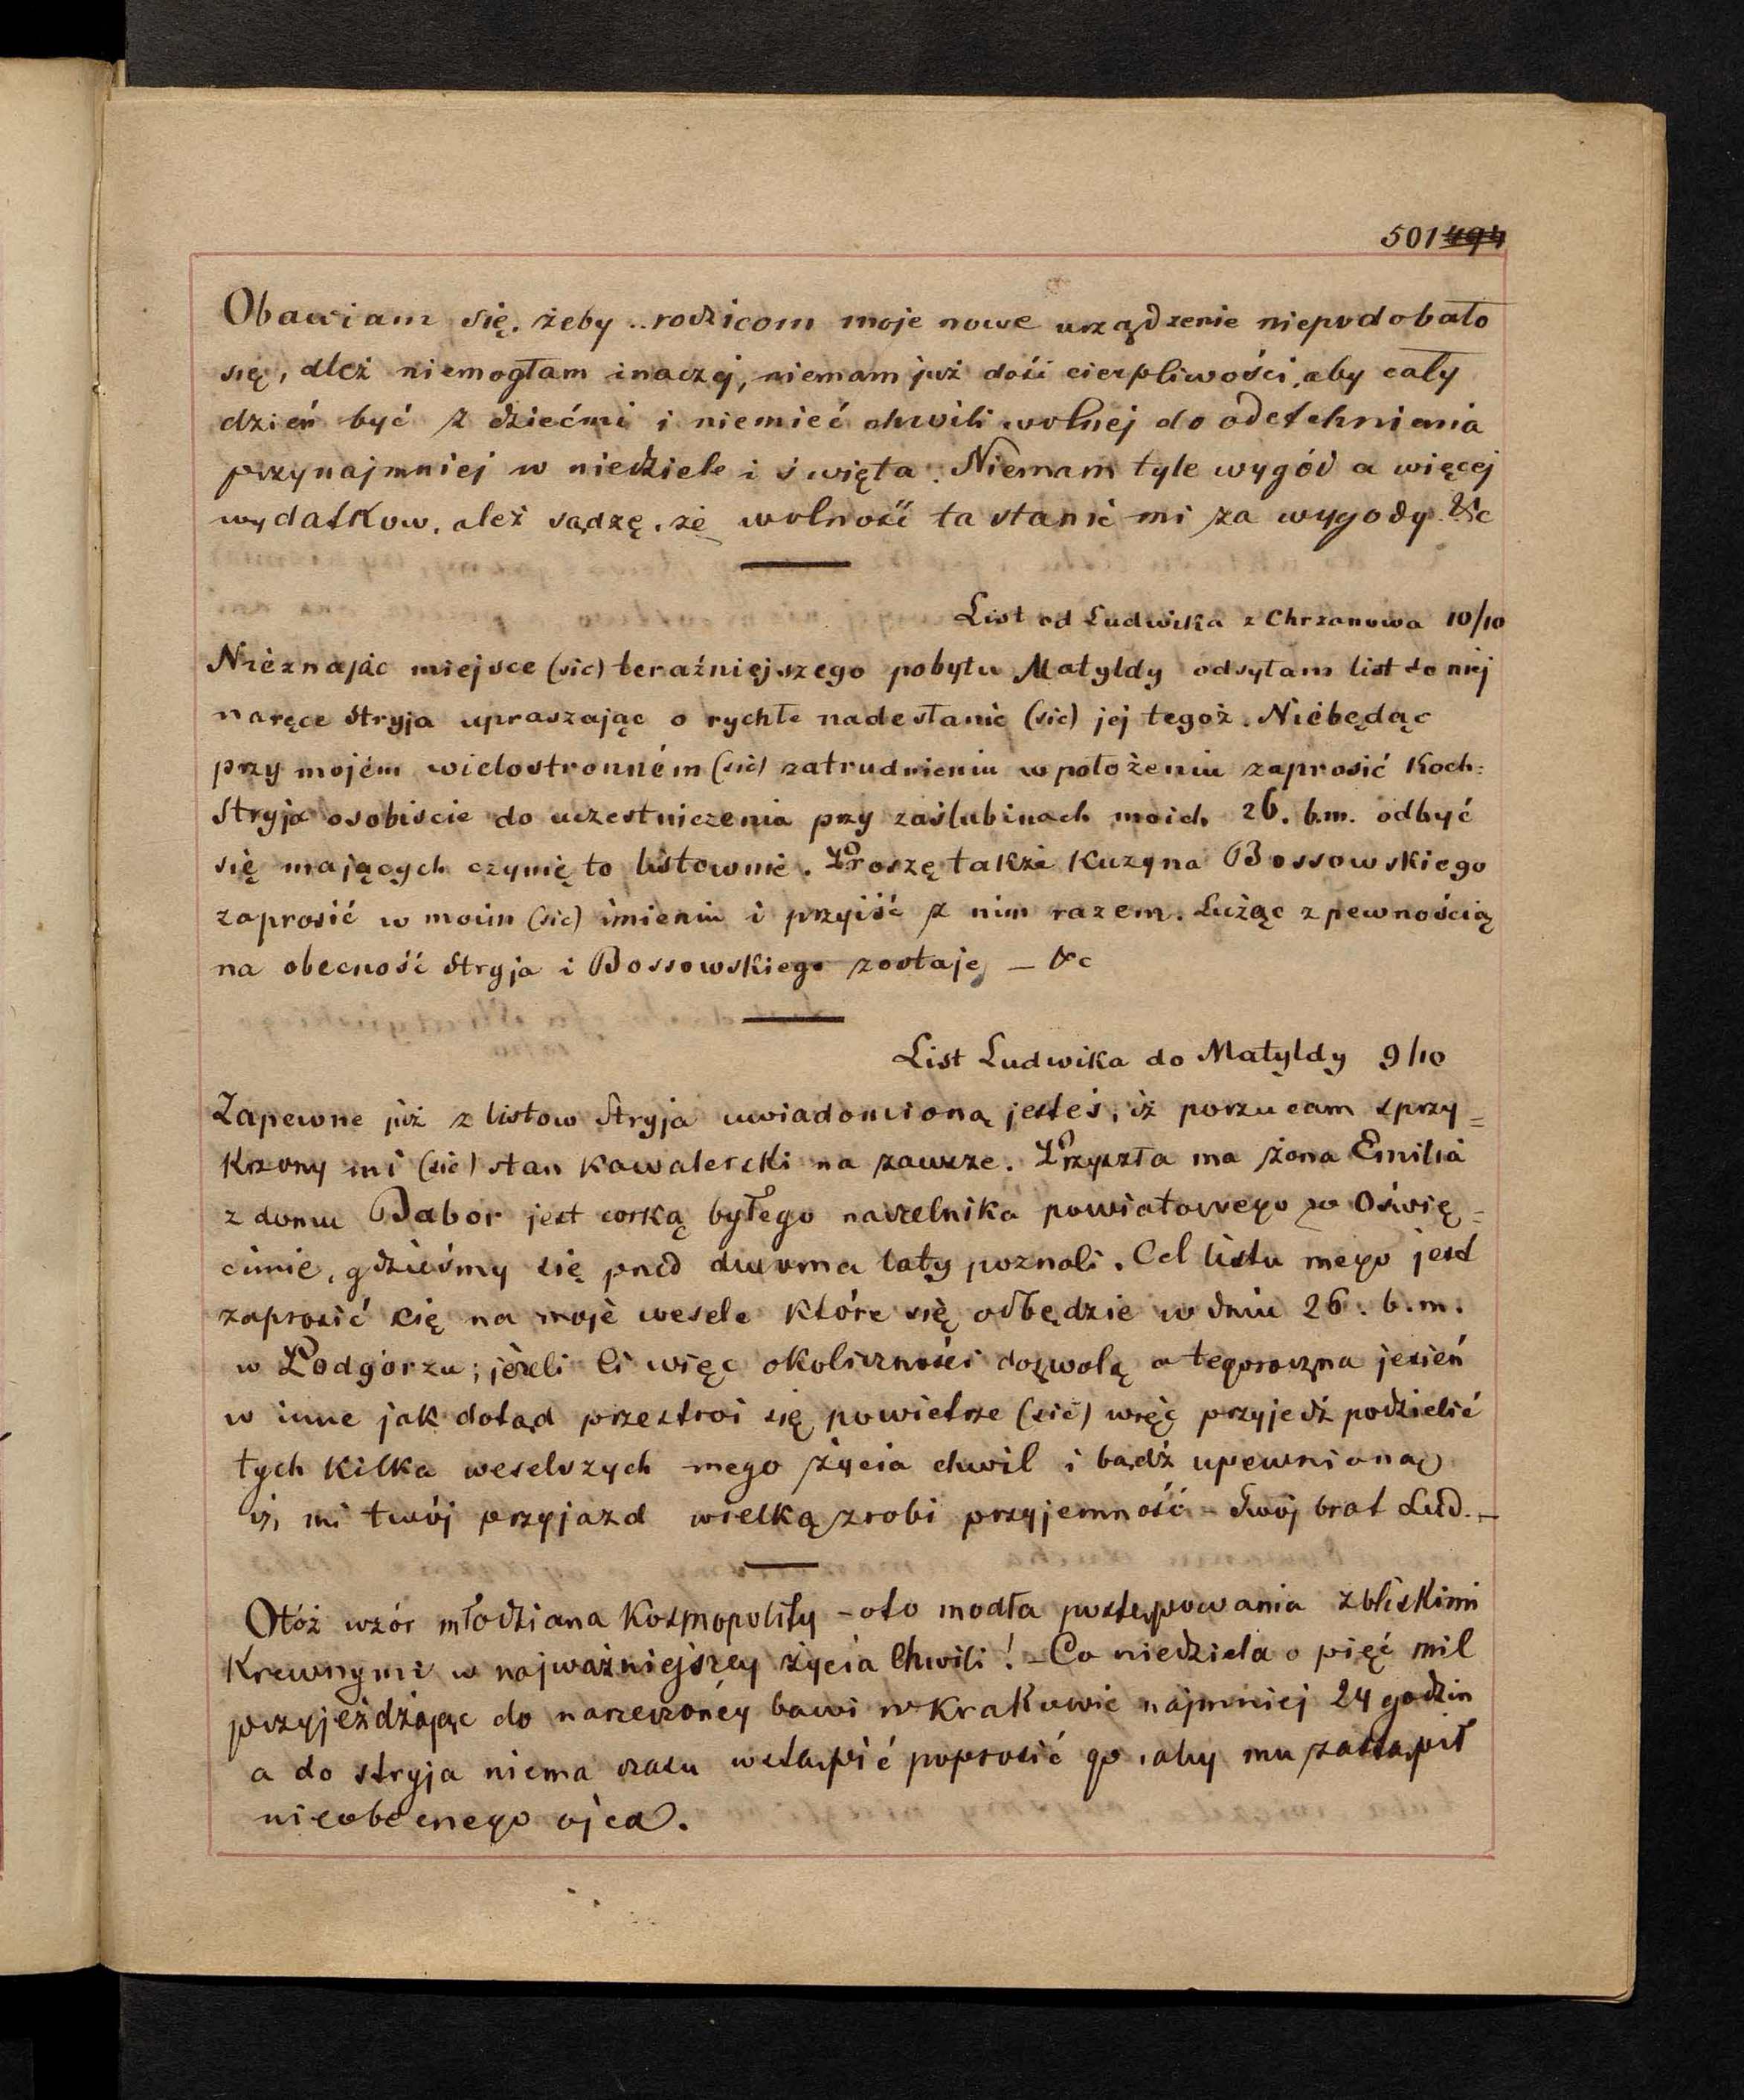 501 494
Obawiam się, żeby .. rodzicom moje nowe urządzenie niepodobało
się, ależ niemogłam inaczej, niemam już dość cierpliwości, aby cały
dzień być z dziećmi i niemieć chwili wolnej do odetchnienia
przynajmniej w niedziele i święta. Niemam tyle wygód a więcej
wydatkow, ależ sądzę, że wolność ta stanie mi za wygody. &c
List od Ludwika z Chrzanowa 10/10
Nieznając miejsce (sic) teraźniejszego pobytu Matyldy odsyłam list do niej
naręce Stryja upraszając o rychłe nadesłanie (sic) jej tegoż. Niebędąc
przy mojém wielostronném (sic) zatrudnieniu w położeniu zaprosić Koch:
Stryja osobiscie do uczestniczenia przy zaślubinach moich 26. b.m. odbyć
się mających czynię to listownie. Proszę także Kuzyna Bossowskiego
zaprosić w moim (sic) imieniu i przyiść z nim razem. Lużąc z pewnością
na obecność Stryja i Bossowskiego zostaję — &c
List Ludwika do Matyldy 9/10
Zapewne już z listow Stryja uwiadomioną jesteś, iż porzucam sprzy=
krzony mi (sic) stan kawalerski na zawsze. Przyszła ma żona Emilia
z domu Babor jest corką byłego naczelnika powiatowego w Oświę=
cimie, gdzieśmy się pred dwoma laty poznali. Cel listu mego jest
zaprosić cię na moje wesele które się odbędzie w dniu 26. b.m.
w Podgorzu; jeżeli li więc okoliczności dozwolą a tegoroczna jesień
w inne jak dotąd przestroi się powietrze (sic) więc przyjedź podzielić
tych kilka weselszych mego życia chwil i bądź upewnioną
iż, mi twój przyjazd wielką zrobi przyjemność - Twój brat Lud. -
Otóż wzór młodziana Kosmopolity - oto modła postępowania z bliskimi
Krewnymi w najważniejszey życia Chwili! - Co niedziela o pięć mil
przyjeżdżając do narzeczonéy bawi w Krakowie najmniej 24 godzin
a do stryja niema czasu wstąpić poprosić go, aby mu zastąpił
nieobecnego ojca.